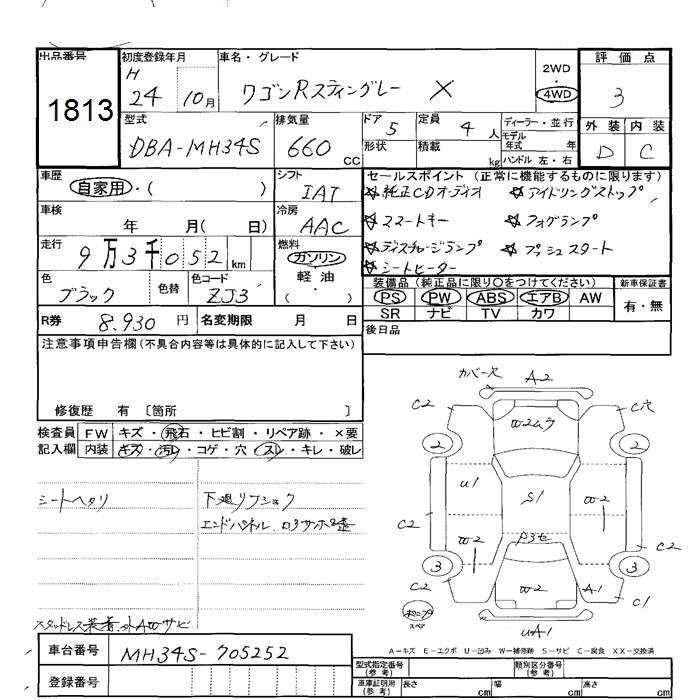 出品番号 初度登録年月 車名・グレード 評価点
1813 H 24 10月 ワゴンRスティングレー X 2WD 4WD 3
型式 排気量 ドア 5 定員 4人 ディーラー・並行 外装 内装
DBA-MH34S 660 cc 形状 積載 kg モデル年式 年 ハンドル 左・右 D C
車歴 自家用・( ) シフト IAT セールスポイント (正常に機能するものに限ります)
☆純正CDオーディオ ☆アイドリングストップ
車検 年 月( 日) 冷房 AAC ☆スマートキー ☆フォグランプ
走行 9万3千052km 燃料 ガソリン 軽油 ( ・ ) ☆ディスチャージランプ ☆プッシュスタート
☆シートヒーター
色 ブラック 色替 色コード ZJ3 装備品(純正品に限り○をつけてください) 新車保証書
PS PW ABS エアB AW 有・無
SR ナビ TV カワ
R券 8.930円 名変期限 月 日 後日品
注意事項申告欄(不具合内容等は具体的に記入して下さい)
修復歴 有 〔箇所 〕
検査員記入欄 FW キズ・飛石・ヒビ割・リペア跡・×要
内装 キズ・汚レ・コゲ・穴・スレ・キレ・破レ
シートヘタリ 下廻リフショク
エンドパネル
カバー欠 A2
C2 W2ムラ C穴
2 2
U1 S1 W2
C2 C2
W2
3 3
C2 W2 A1 C1
UA1
スペア
スタッドレス装着 外AWサビ
A-キズ E-エクボ U-凹み W-補修跡 S-サビ C-腐食 XX-交換済
車台番号 MH34S-705252
登録番号
型式指定番号(参考) 類別区分番号(参考)
車庫証明用(参考) 長さ cm 幅 cm 高さ cm